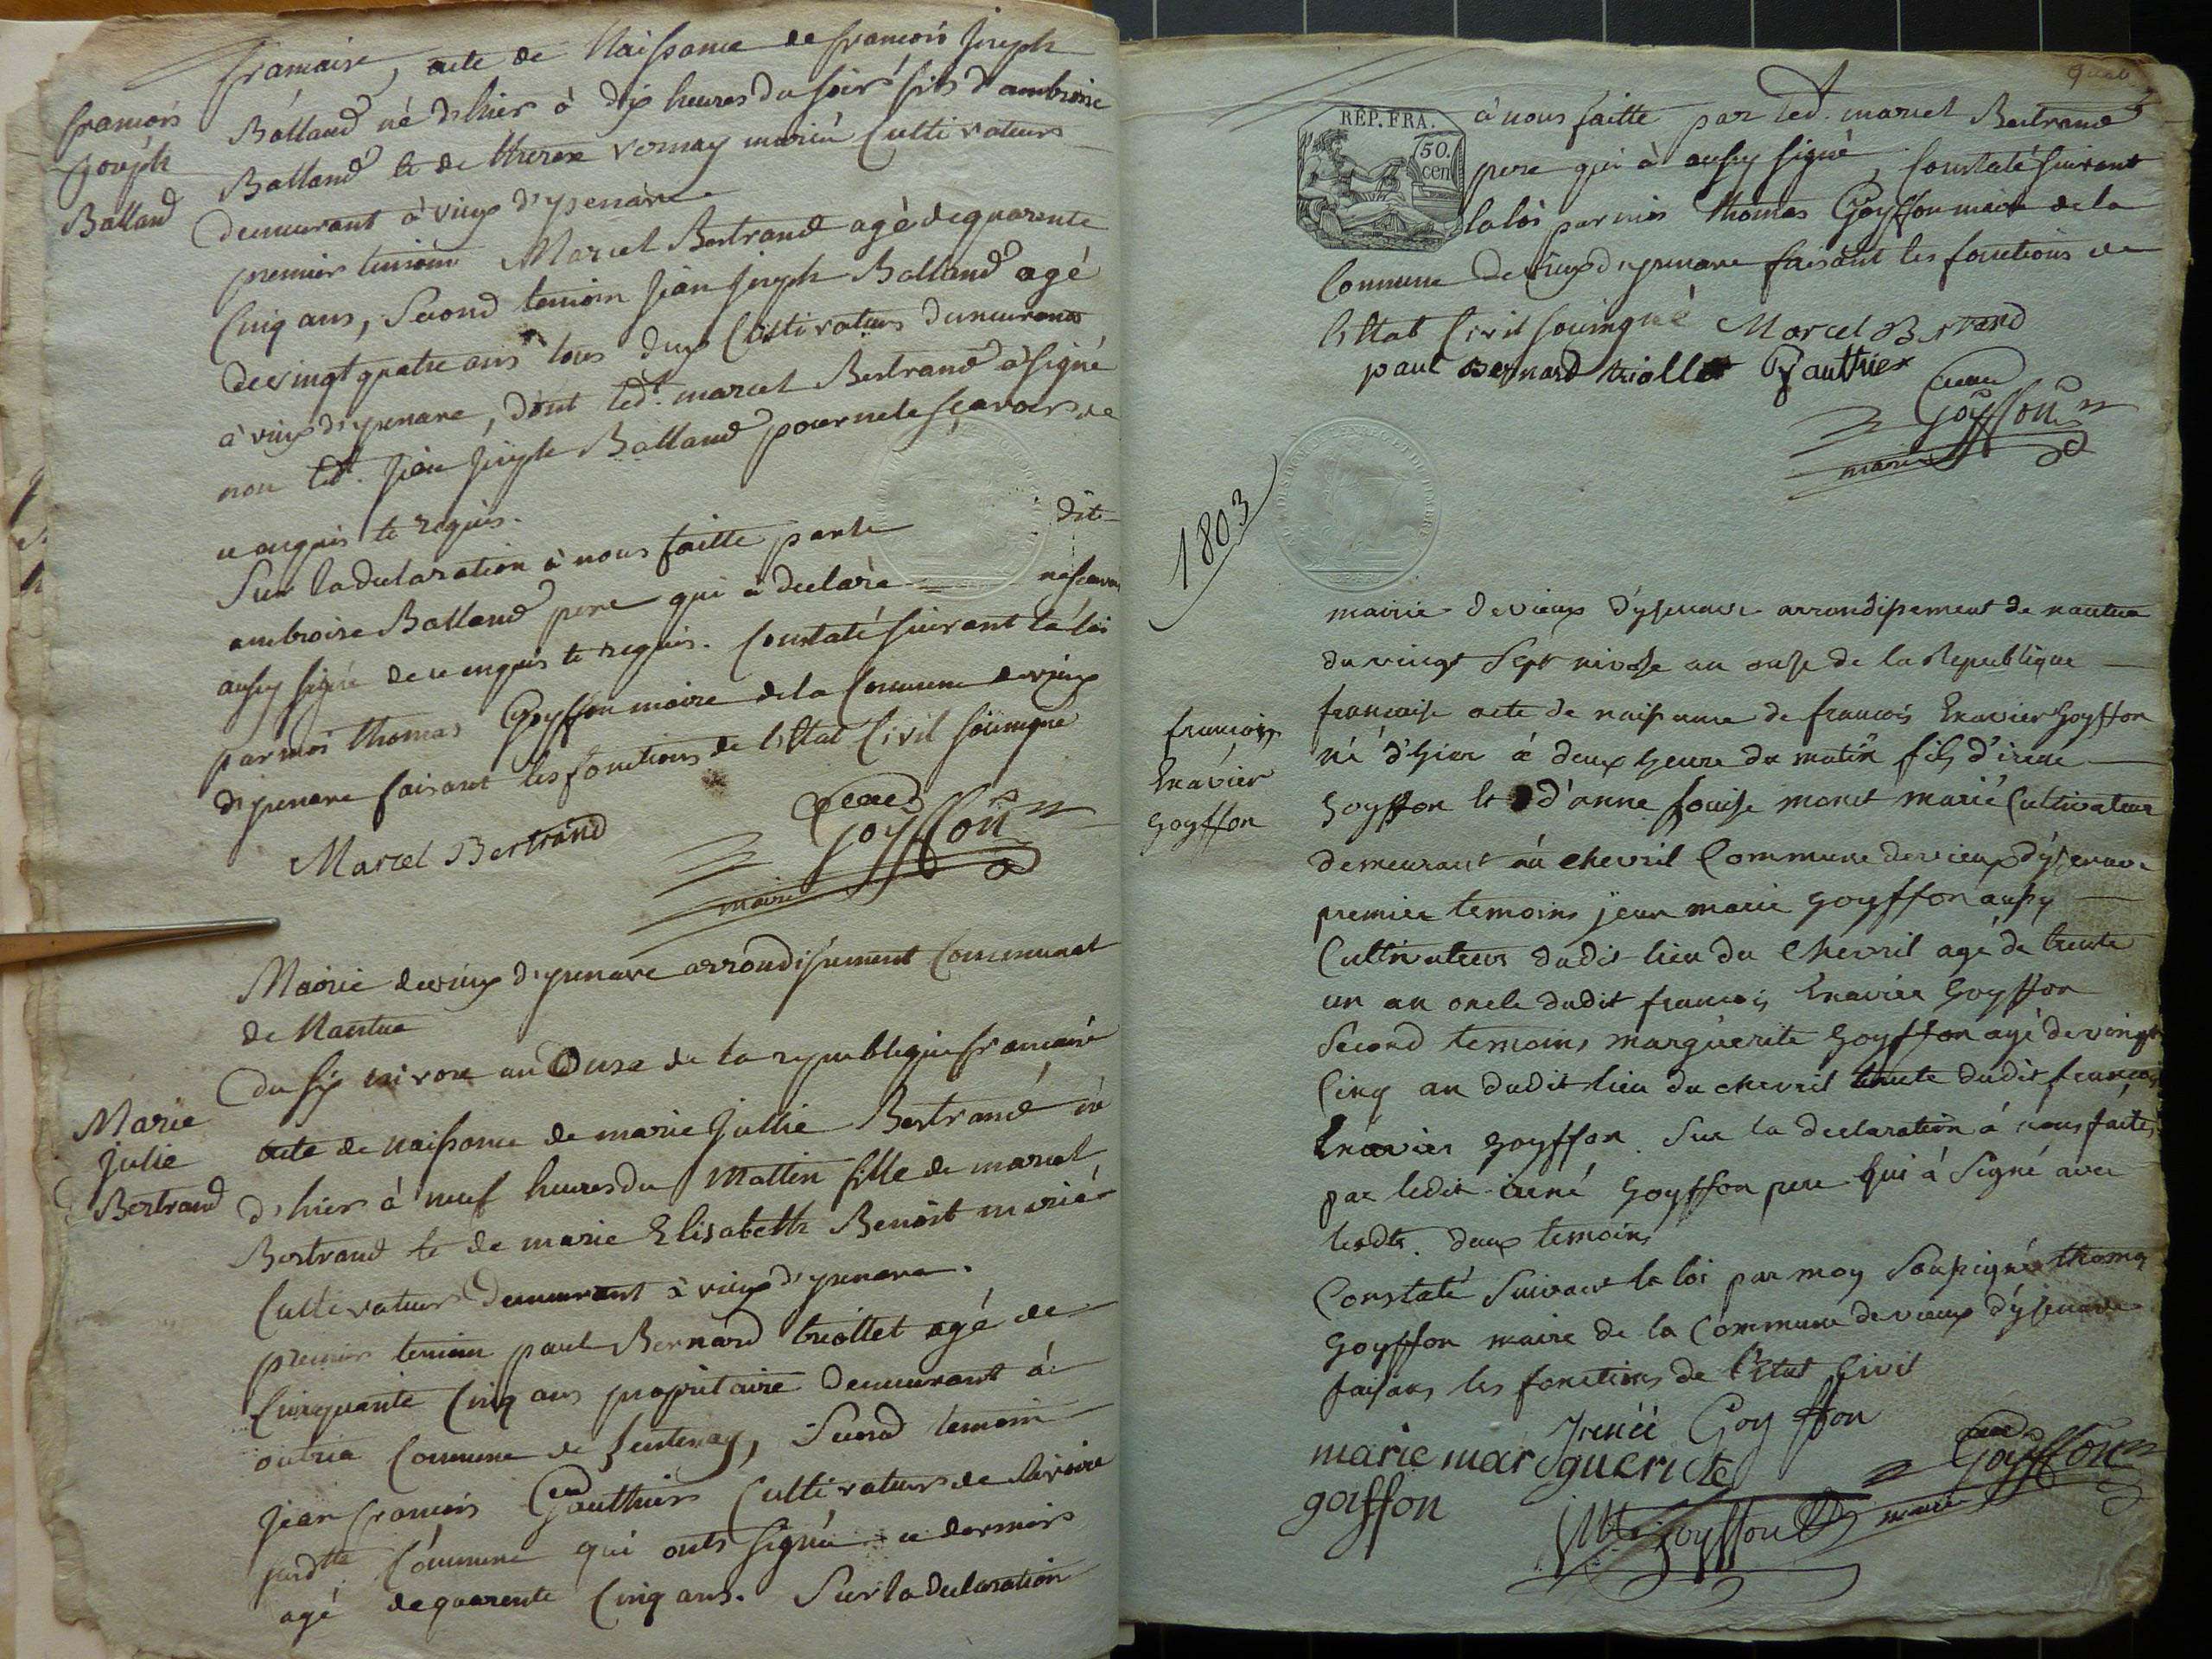 francaise, acte de Naissance de francois Joseph
francois
Joseph
Balland
Balland né d'hier à dix heures du soir fils d'ambroise
Balland et de therese vernay mariés Cultivateurs
demeurant à vieux d'ysenave
premier temoin Marcel Bertrand agé de quarente
Cinq ans, Second temoin jean joseph Balland agé
de vingt quatre ans tous deux Cultivateurs demeurants
à vieux d'ysenave, dont led.t marcel Bertrand à signé
non led.t jean joseph Balland pour ne le sçavoir de
ce enquis et requis.
Sur la declaration à nous faitte par le dit
ambroise Balland pere qui à declaré ne scavoir
aussy signé de ce enquis et requis. Constaté suivant la loi
par moi thomas Goyffon maire de la Commune de vieux
d'ysenave faisant les fonctions de l'ettat Civil soussigné
Marcel Bertrand
Goyffon
maire
Mairie de vieux d'ysenave arrondissement Communal
de Nantua
du six nivose an Onze de la republique francaise
Marie
julie
Bertrand
acte de naissance de marie jullie Bertrand né
d'hier à neuf heures du mattin fille de marcel
Bertrand et de marie Elisabeth Benoit mariés
Cultivateurs demeurant à vieux d'ysenave.
premier temoin paul Bernard triollet agé de
Cinquante Cinq ans propriétaire demeurant à
outria Commune de , Second temoin
jean francois Gauthier Cultivateur de
susd.tte Commune qui onts signé ce dernier
agé de quarente Cinq ans. Sur la declaration
RÉP. FRA.
50.
cen
à nous faitte par led. marcel Bertrand
pere qui à aussy signé, Constaté suivant
la loi par moi thomas Goyffon maire de la
Commune de vieux d'ysenave faisant les fonctions de
l'ettat Civil soussigné Marcel Bertrand
paul Bernard triollet Gauthier
Goyffon
maire
1803
mairie de vieux d'ysenave arrondissement de nantua
du vingt Sept nivose an onze de la Republique
francaise acte de naissance de francois Exavier Goyffon
francois
Exavier
Goyffon
né d'hier à deux heure du matin fils d'irené
Goyffon et d'anne louise moret marié Cultivateur
demeurant au chevril Commune de vieux d'ysenave
premier temoins jean marie Goyffon aussy
Cultivateur dudit lieu du Chevril agé de trente
un an oncle dudit francois Exavier Goyffon
Second temoins marguerite Goyffon agé de vingt
Cinq an dudit lieu du chevril tante dudit francois
Exavier Goyffon. Sur la declaration à nous faites
par ledit irené Goyffon pere qui à Signé avec
lesdts. deux temoins
Constaté Suivant la loi par moy Soussigné thomas
Goyffon maire de la Commune de vieux d'ysenave
faisans les fonctions de l'Etat Civil
Irenée Goyffon
marie marguerite
goiffon
Goyffon
maire
Goyffon